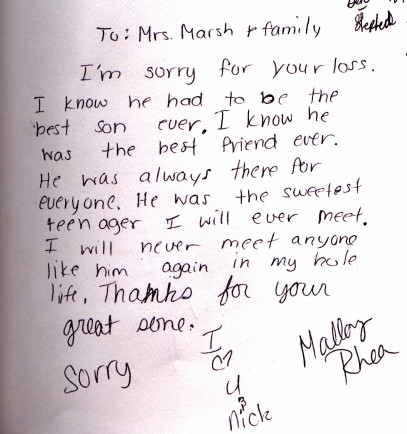 To: Mrs. Marsh & family
I'm sorry for your loss.
I know he had to be the
best son ever. I know he
was the best friend ever.
He was always there for
everyone. He was the sweetest
teenager I will ever meet.
I will never meet anyone
like him again in my hole
life. Thanks for your
great sone.
Sorry
I
♡
u
nick
Mallory
Rhea